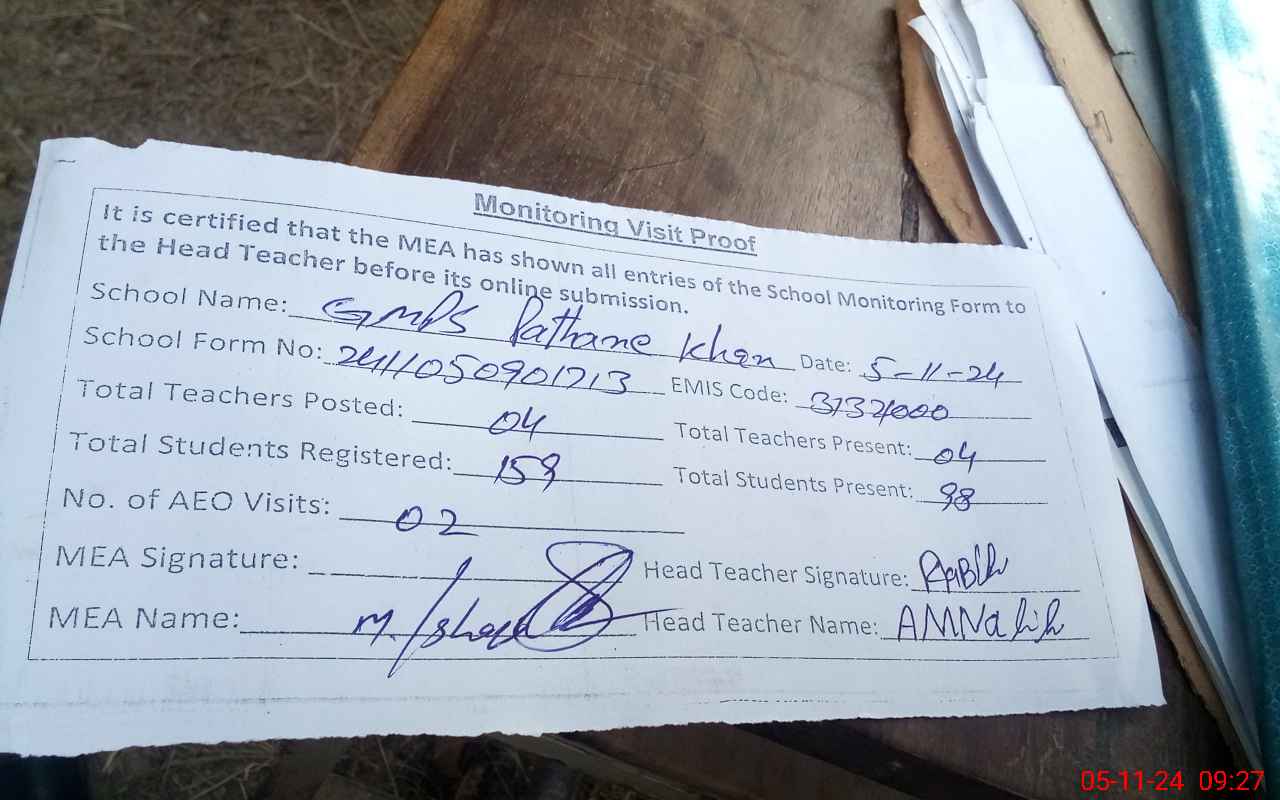 Monitoring Visit Proof
It is certified that the MEA has shown all entries of the School Monitoring Form to
the Head Teacher before its online submission.
School Name: GMPS Pathane Khan Date: 5-11-24
School Form No: 2411050901713 EMIS Code:
Total Teachers Posted: 04 Total Teachers Present: 04
Total Students Registered: 159 Total Students Present: 98
No. of AEO Visits: 02
MEA Signature: Head Teacher Signature:
MEA Name: M. Head Teacher Name: AMNa
05-11-24 09:27